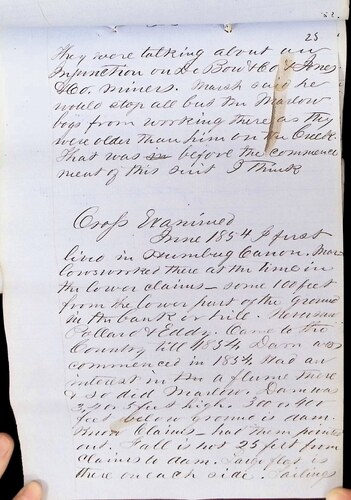 25
They were talking about an
Injunction on De Bow & Co & Jones
& Co. miners. Marsh said he
would stop all but the Marlow
boys from working there as they
were older than him on the Creek
That was before the commence
ment of this suit I think
Cross Examined
June 1854 I first
lived in Humbug Canon. Mar
lows worked there at the time in
the lower claims – some 100 feet
from the lower part of the ground
in the bank or hill. Never saw
Pollard & Eddy. Came to the
Country till 1854. Dam was
commenced in 1854. Had an
interest in a flume there
& so did Marlow. Dam was
3, 4 or 5 feet high. 300 or 400
feet below ground is dam.
Know Claims had them pointed
out. Fall is not 25 feet from
claims to dam. Large flat is
there on each side. Tailings